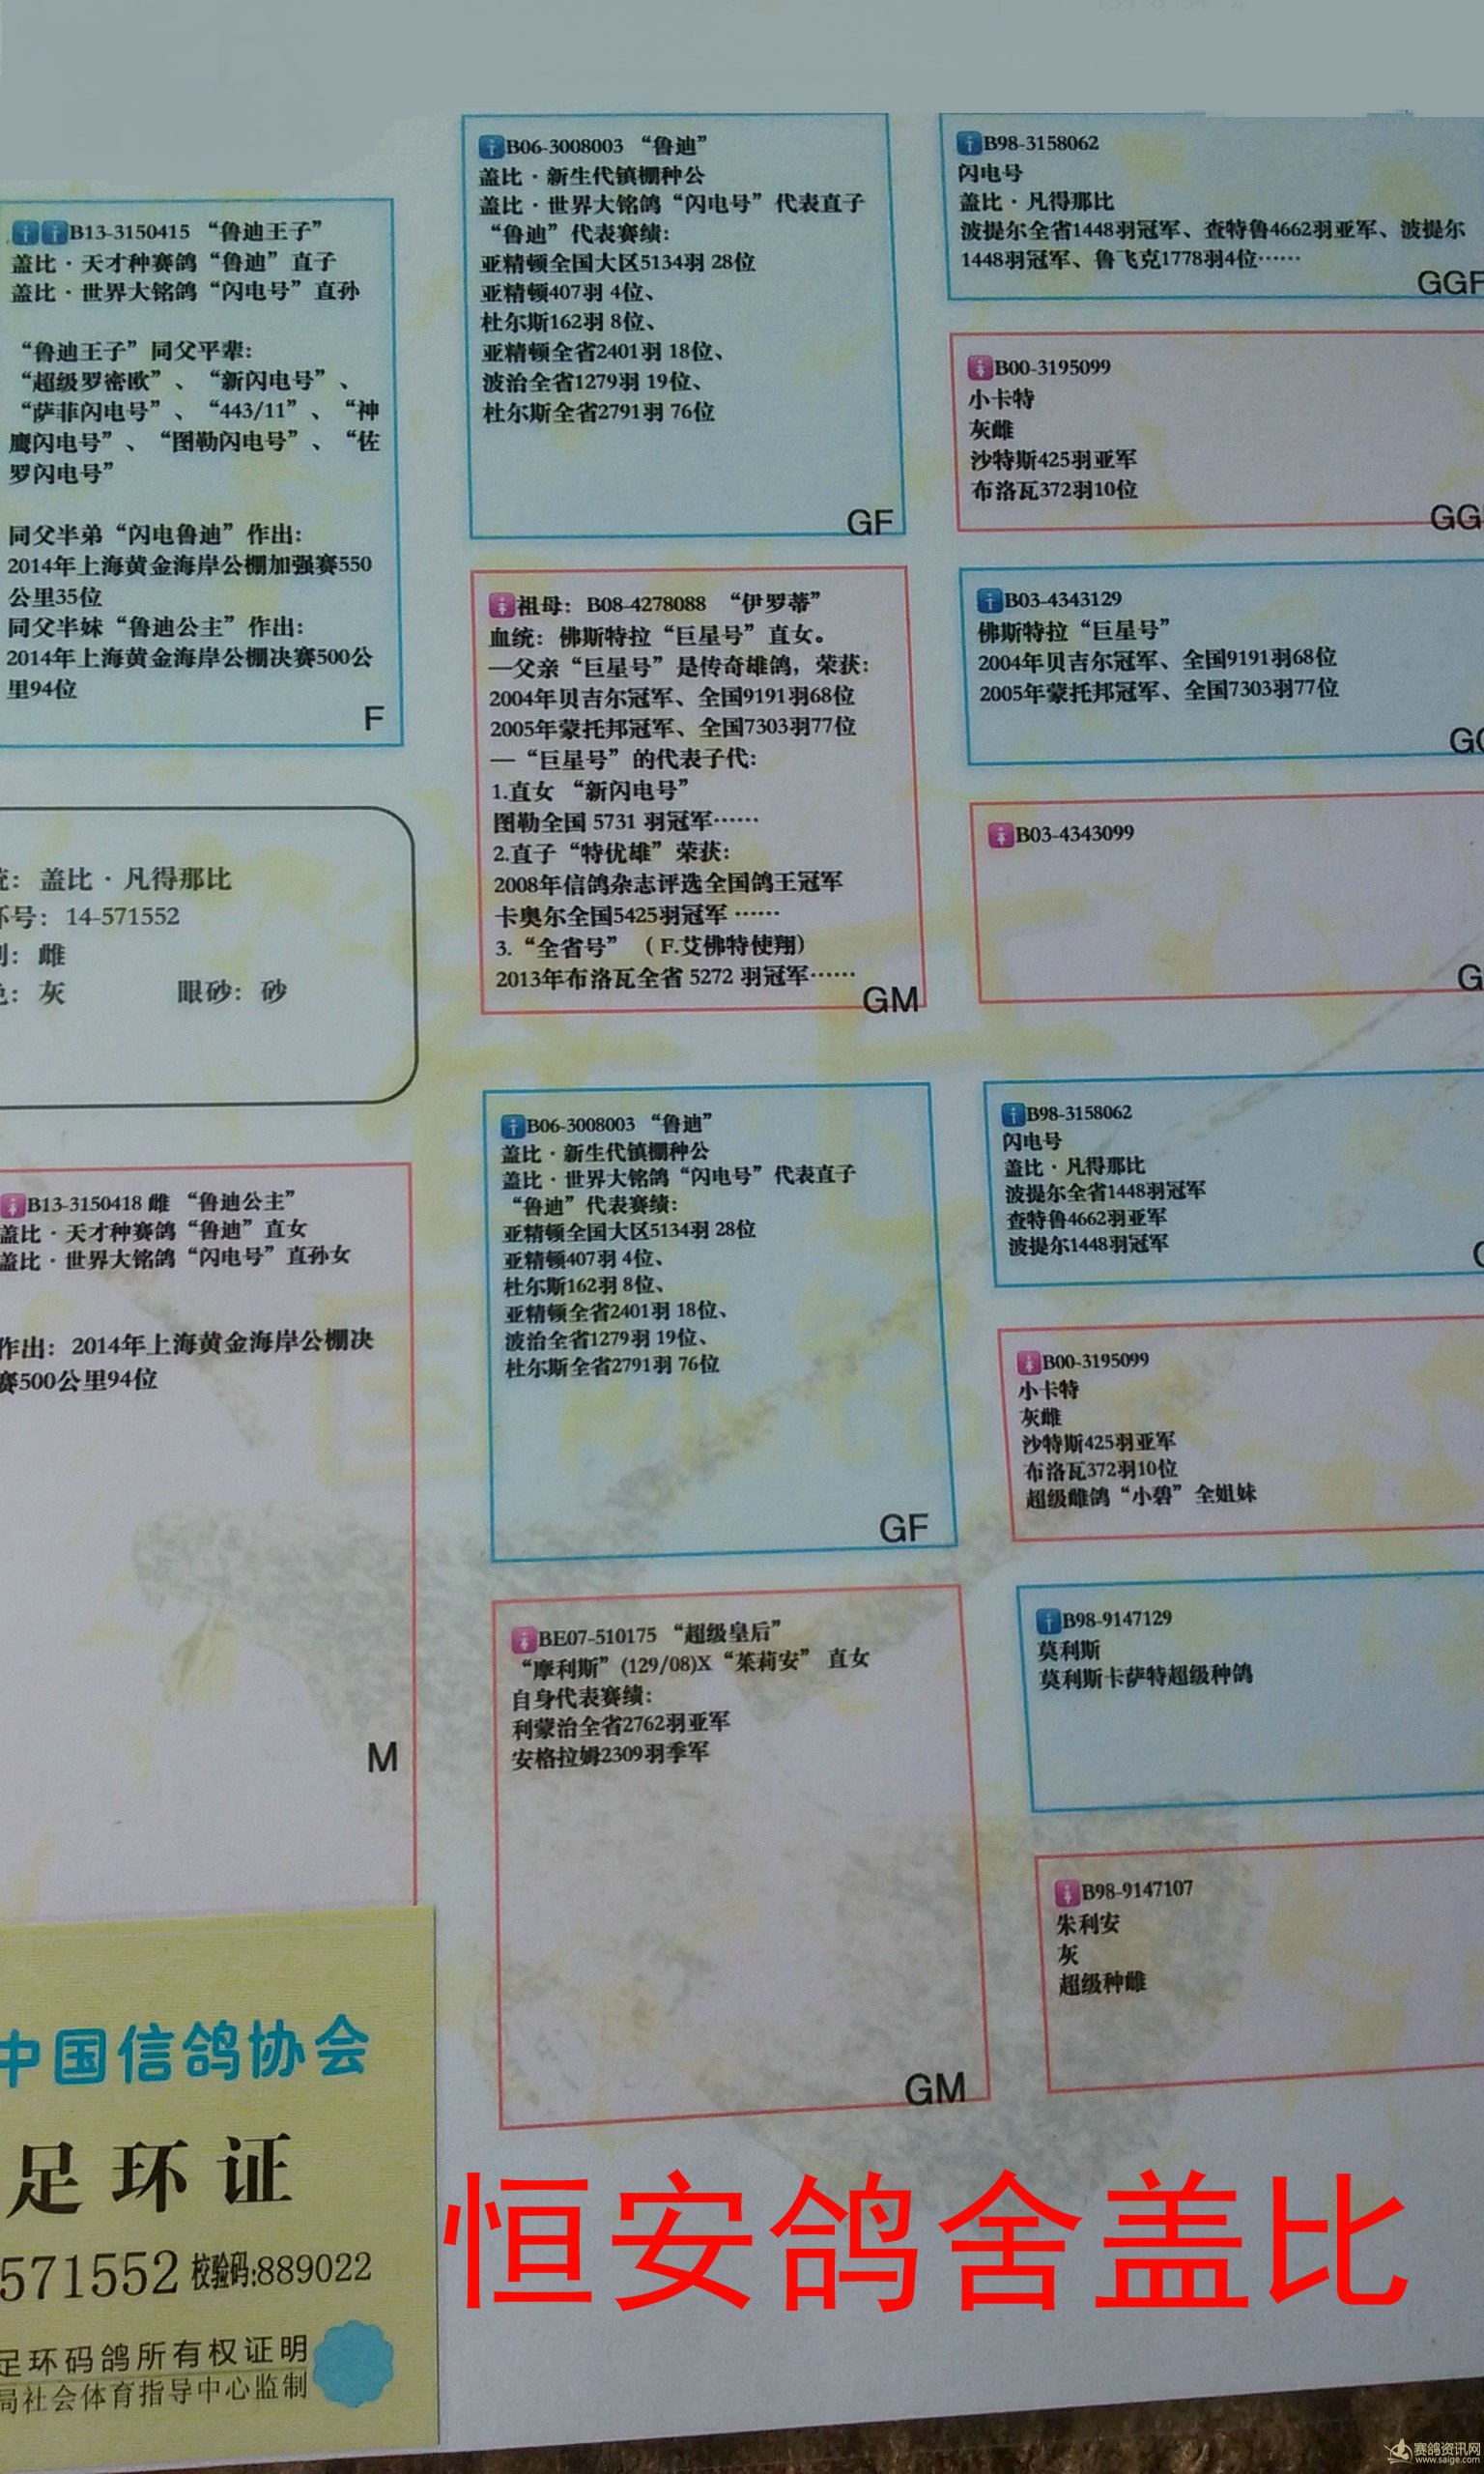 B13-3150415 “鲁迪王子”
盖比·天才种赛鸽“鲁迪”直子
盖比·世界大铭鸽“闪电号”直孙
“鲁迪王子”同父平辈：
“超级罗密欧”、“新闪电号”、
“萨菲闪电号”、“443/11”、“神
鹰闪电号”、“图勒闪电号”、“佐
罗闪电号”
同父半弟“闪电鲁迪”作出：
2014年上海黄金海岸公棚加强赛550
公里35位
同父半妹“鲁迪公主”作出：
2014年上海黄金海岸公棚决赛500公
里94位
F
：盖比·凡得那比
号：14-571552
：雌
：灰 眼砂：砂
B13-3150418 雌 “鲁迪公主”
盖比·天才种赛鸽“鲁迪”直女
盖比·世界大铭鸽“闪电号”直孙女
作出：2014年上海黄金海岸公棚决
赛500公里94位
M
B06-3008003 “鲁迪”
盖比·新生代镇棚种公
盖比·世界大铭鸽“闪电号”代表直子
“鲁迪”代表赛绩：
亚精顿全国大区5134羽 28位
亚精顿407羽 4位、
杜尔斯162羽 8位、
亚精顿全省2401羽 18位、
波治全省1279羽 19位、
杜尔斯全省2791羽 76位
GF
祖母：B08-4278088 “伊罗蒂”
血统：佛斯特拉“巨星号”直女。
—父亲“巨星号”是传奇雄鸽，荣获：
2004年贝吉尔冠军、全国9191羽68位
2005年蒙托邦冠军、全国7303羽77位
—“巨星号”的代表子代：
1.直女 “新闪电号”
图勒全国 5731 羽冠军……
2.直子“特优雄”荣获：
2008年信鸽杂志评选全国鸽王冠军
卡奥尔全国5425羽冠军 ……
3.“全省号” （F.艾佛特使翔）
2013年布洛瓦全省 5272 羽冠军……
GM
B06-3008003 “鲁迪”
盖比·新生代镇棚种公
盖比·世界大铭鸽“闪电号”代表直子
“鲁迪”代表赛绩：
亚精顿全国大区5134羽 28位
亚精顿407羽 4位、
杜尔斯162羽 8位、
亚精顿全省2401羽 18位、
波治全省1279羽 19位、
杜尔斯全省2791羽 76位
GF
BE07-510175 “超级皇后”
“摩利斯”(129/08)X“茱莉安” 直女
自身代表赛绩：
利蒙治全省2762羽亚军
安格拉姆2309羽季军
GM
B98-3158062
闪电号
盖比·凡得那比
波提尔全省1448羽冠军、查特鲁4662羽亚军、波提尔
1448羽冠军、鲁飞克1778羽4位……
GGF
B00-3195099
小卡特
灰雌
沙特斯425羽亚军
布洛瓦372羽10位
GG
B03-4343129
佛斯特拉“巨星号”
2004年贝吉尔冠军、全国9191羽68位
2005年蒙托邦冠军、全国7303羽77位
GG
B03-4343099
G
B98-3158062
闪电号
盖比·凡得那比
波提尔全省1448羽冠军
查特鲁4662羽亚军
波提尔1448羽冠军
G
B00-3195099
小卡特
灰雌
沙特斯425羽亚军
布洛瓦372羽10位
超级雌鸽“小碧”全姐妹
B98-9147129
莫利斯
莫利斯卡萨特超级种鸽
B98-9147107
朱利安
灰
超级种雌
中国信鸽协会
足环证
571552 校验码:889022
足环码鸽所有权证明
局社会体育指导中心监制
恒安鸽舍盖比
赛鸽资讯网
www.saige.com